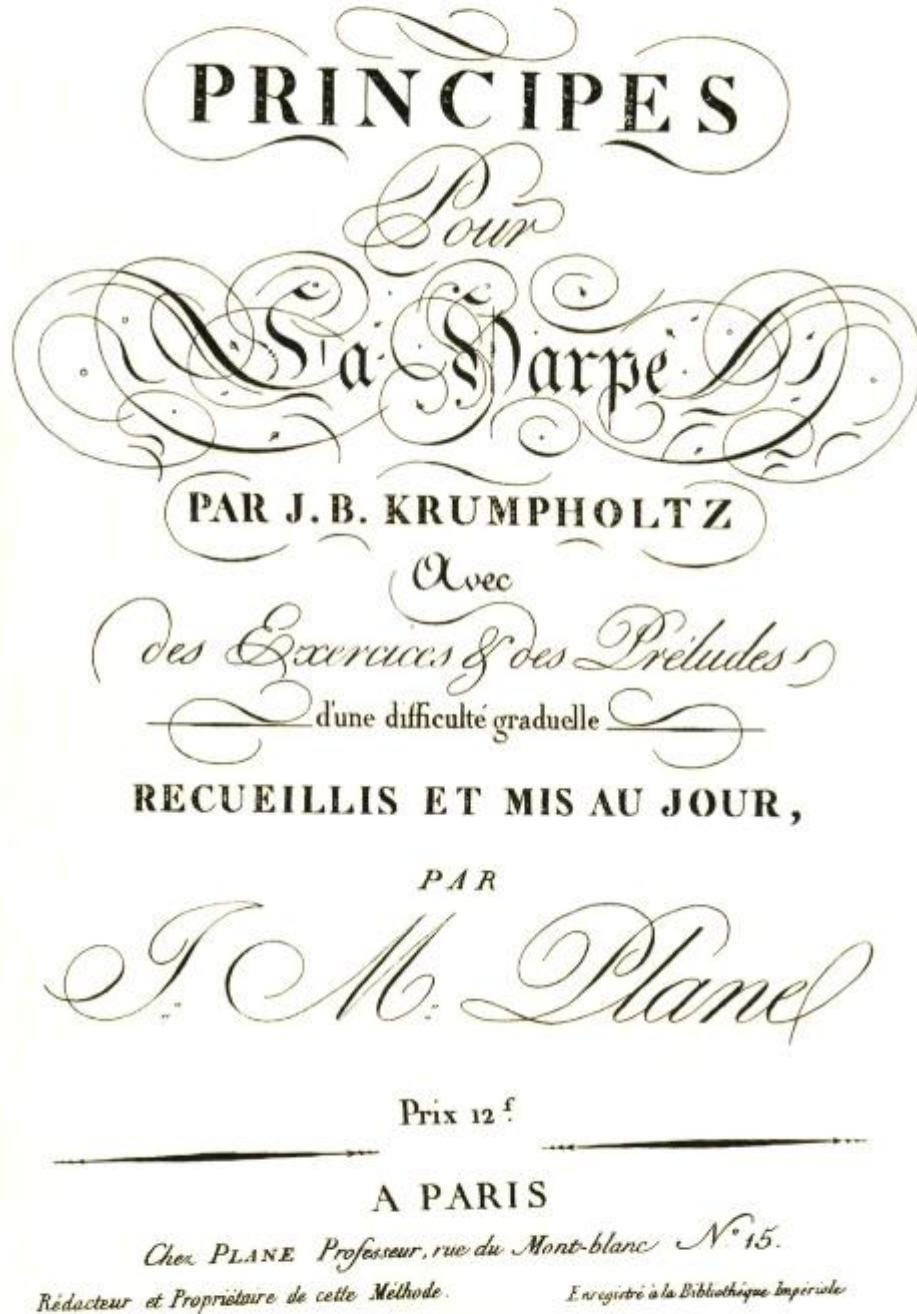 PRINCIPES
Pour
La Harpe
PAR J. B. KRUMPHOLTZ
Avec
des Exercices & des Préludes
d'une difficulté graduelle
RECUEILLIS ET MIS AU JOUR,
PAR
J. M. Plane
Prix 12 f.
A PARIS
Chez PLANE Professeur, rue du Mont-blanc N.° 15.
Rédacteur et Propriétaire de cette Méthode. Enregistré à la Bibliothéque Impériale